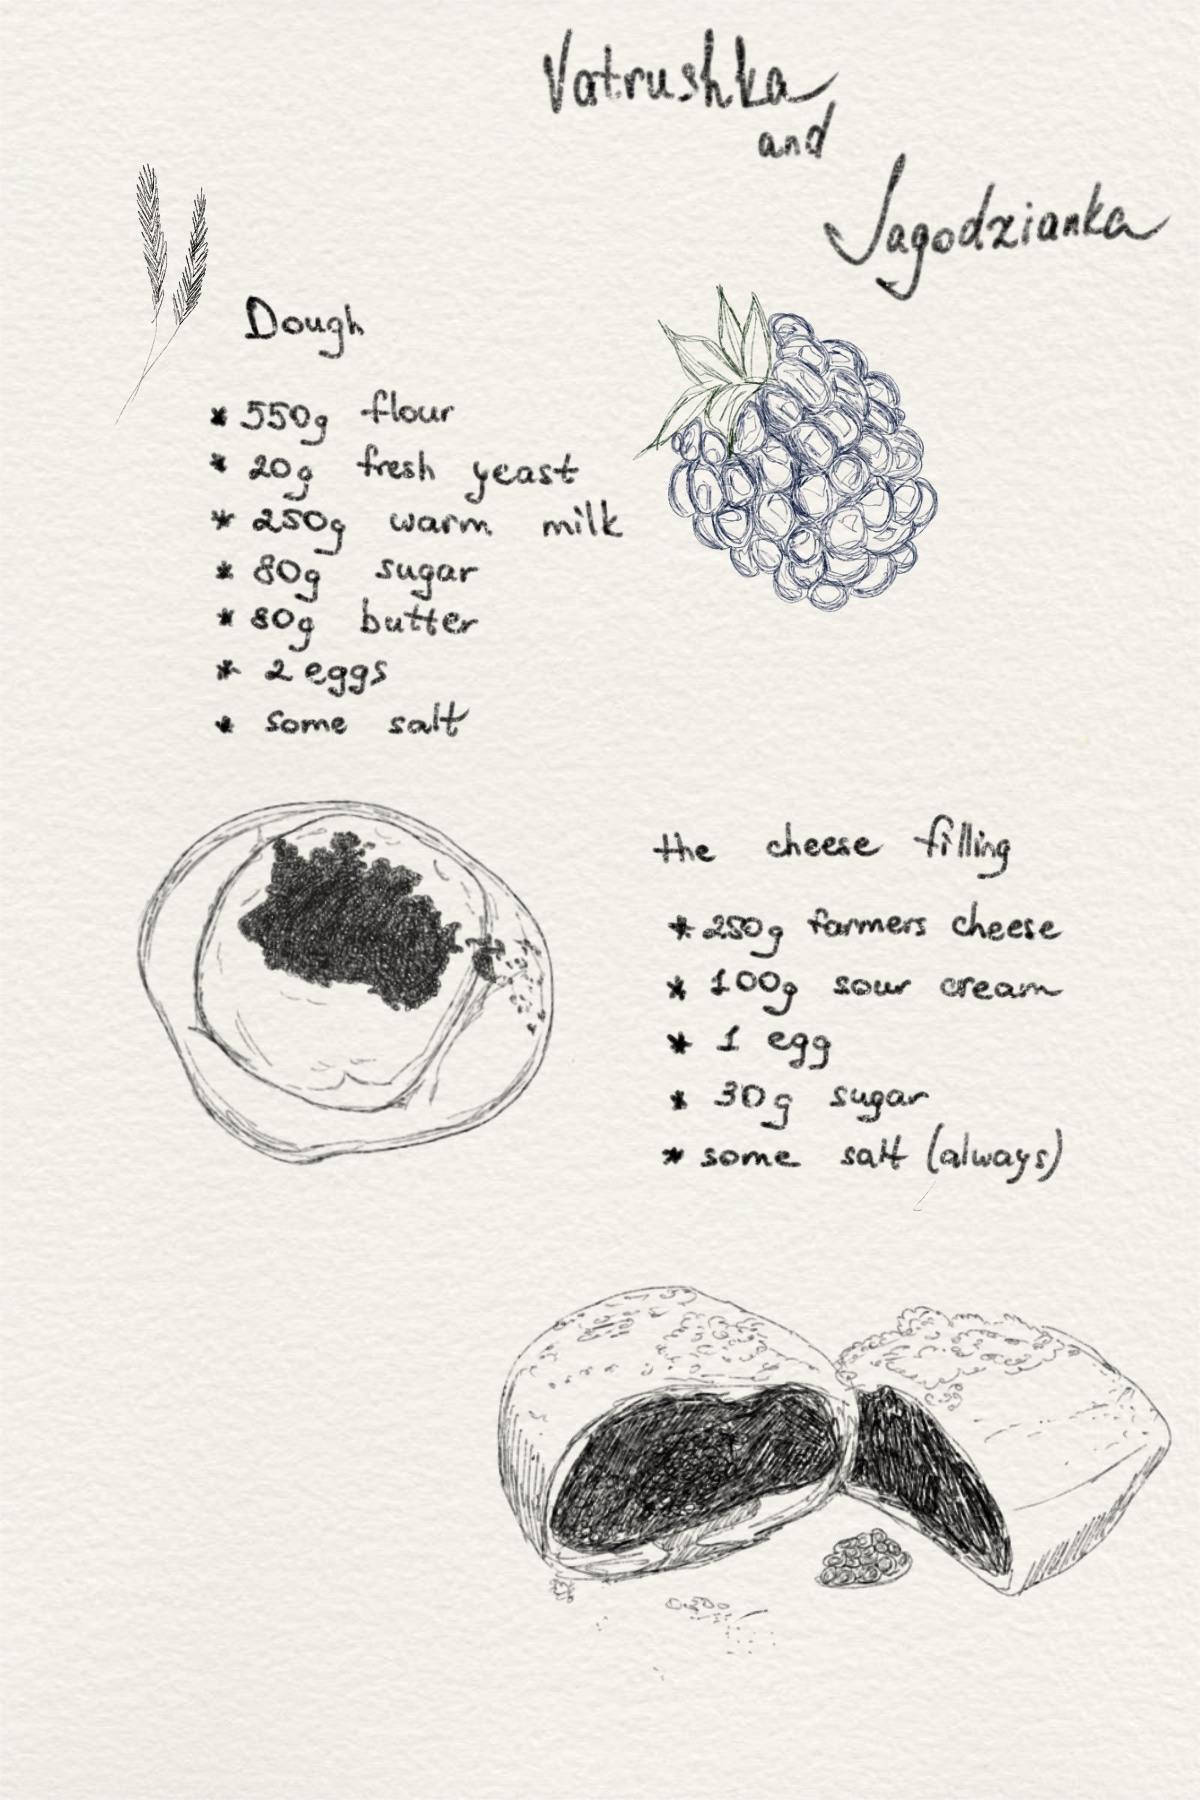 Vatrushka
and
Jagodzianka
Dough
* 550g flour
* 20g fresh yeast
* 250g warm milk
* 80g sugar
* 80g butter
* 2 eggs
* some salt
the cheese filling
* 250g farmers cheese
* 100g sour cream
* 1 egg
* 30g sugar
* some salt (always)